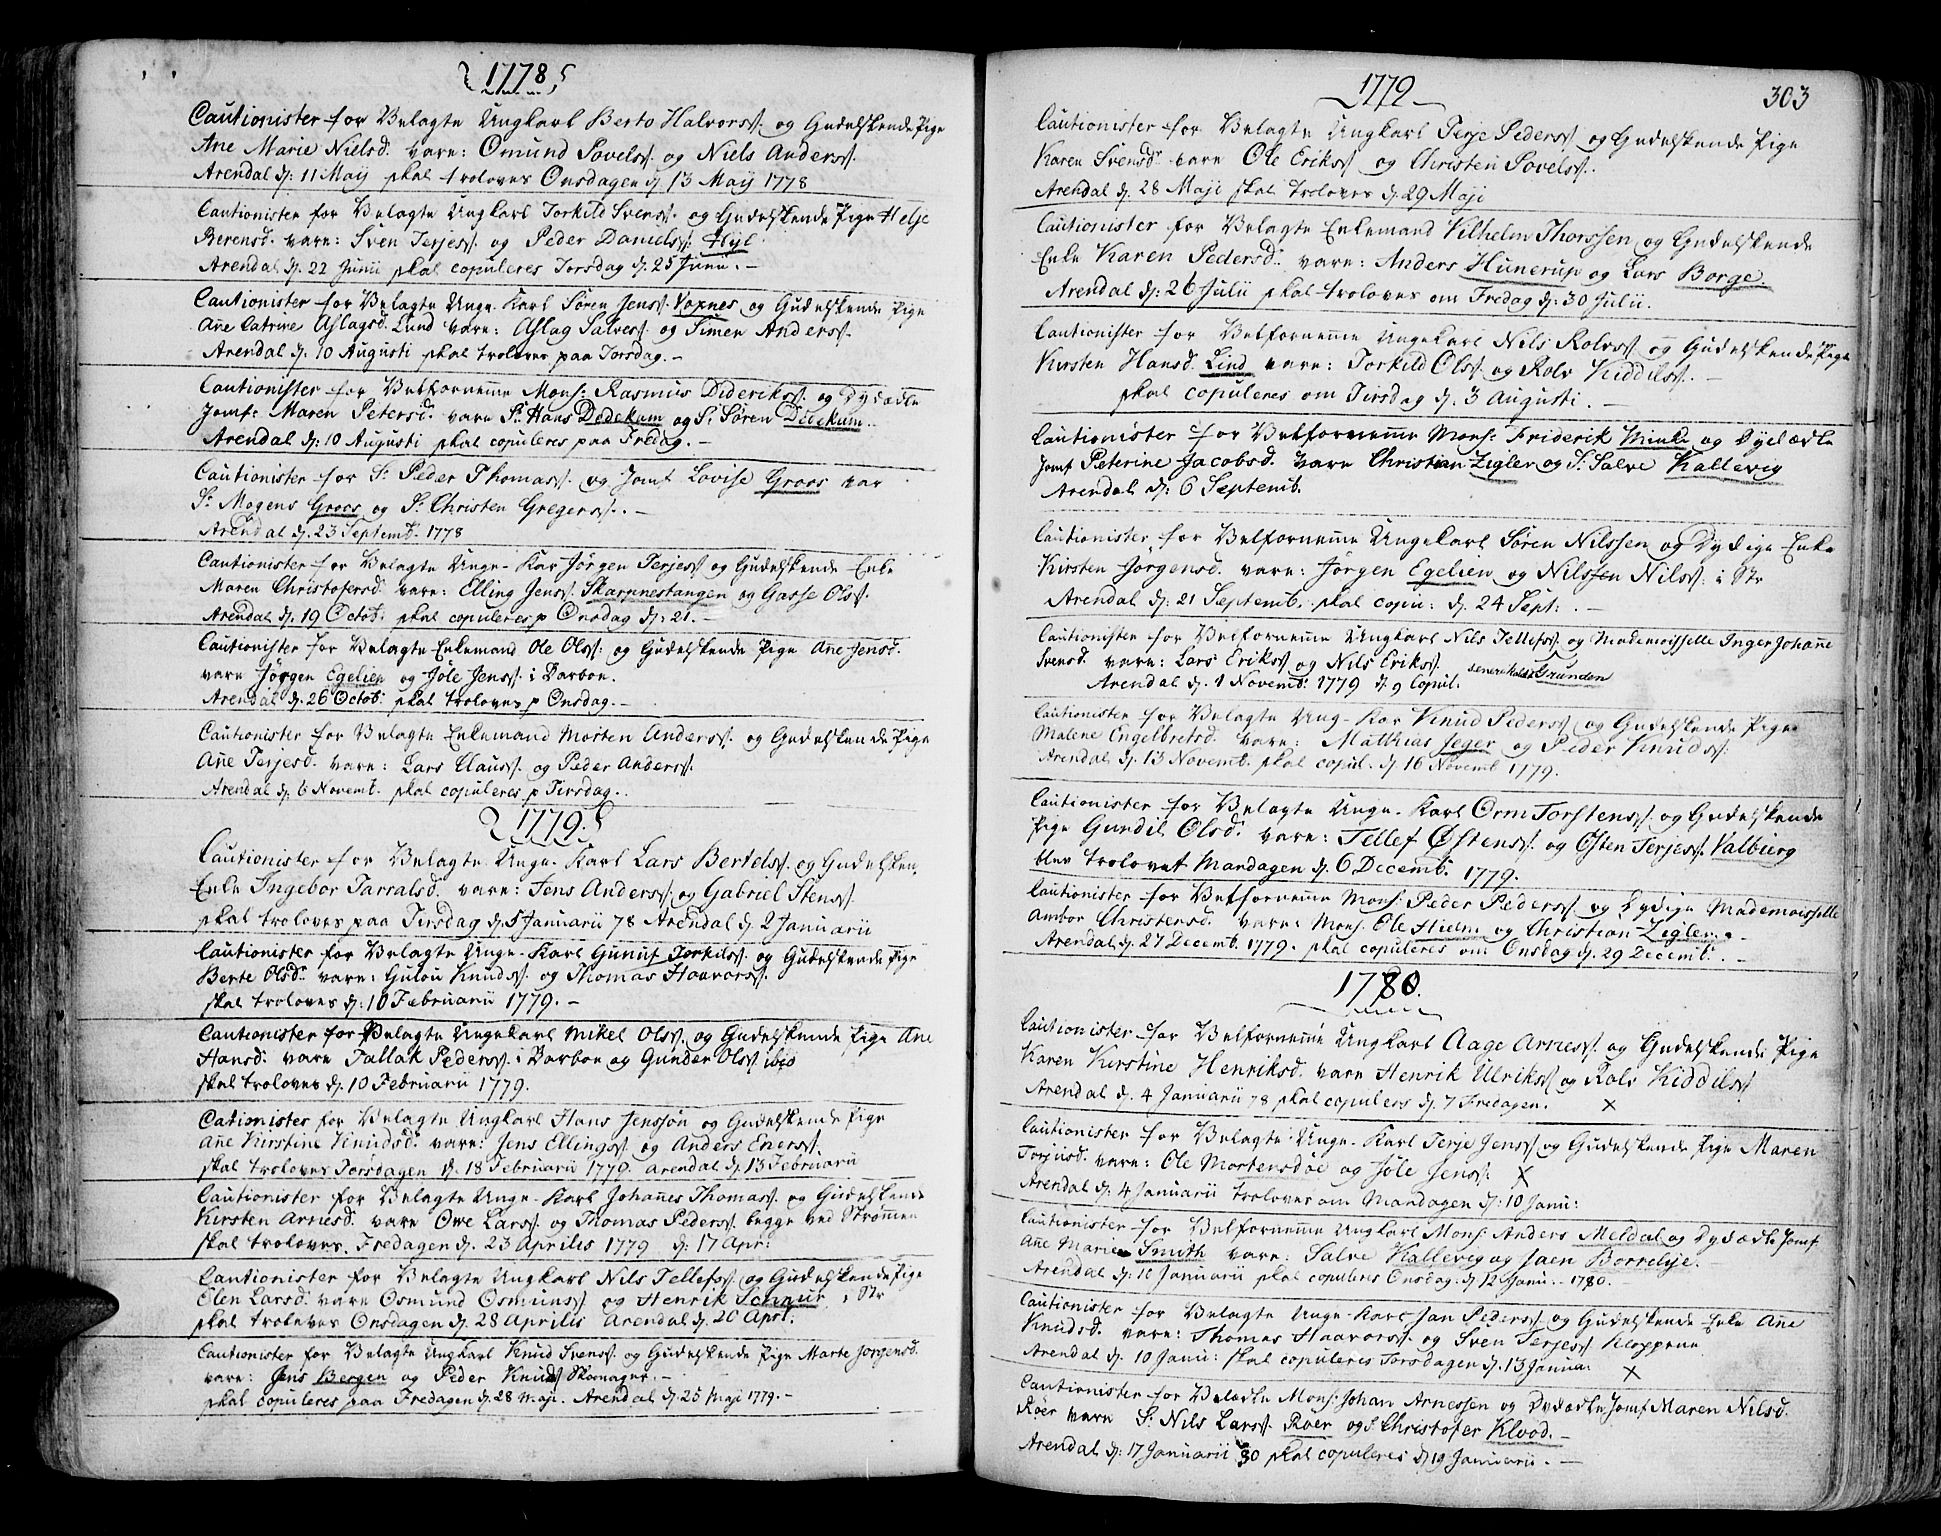 1778
Cautionister for Velagte Ungkarl Berto Halvors. og Gudelskende Pige
Ane Marie Nielsd. vare: Omund Sovels. og Niels Anders.
Arendal d: 11 Maij skal troloves Onsdagen d 13 Maij 1778
Cautionister for Velagte Ungkarl Torkild Svens. og Gudelskende Pige Helje
Berensd. vare: Sven Terjes. og Peder Daniels. Hÿl.
Arendal d. 22 Junii skal copuleres Torsdag d. 25 Junii. -
Cautionister for Velagte Unge-Karl Søren Jens. Voxnes og Gudelskende Pige
Ane Catrine Aslagsd. Lund vare: Aslag Salves. og Simen Anders.
Arendal d: 10 Augusti skal troloves paa Torsdag. -
Cautionister for Velfornemme Mons: Rasmus Dideriks. og Dydædle
Jomf: Maren Petersd. vare Sr. Hans Dedekum og Sr. Søren Dedekum.
Arendal d: 10 Augusti skal copuleres paa Fredag. -
Cautionister for Sr. Peder Thomas. og Jomf Lovise Groos var
Sr. Mogens Groos og Sr. Christen Gregers. -
Arendal d. 23 Septemb. 1778
Cautionister for Velagte Unge-Kar Jørgen Terjes og Gudelskende Enke
Maren Christofersd. vare: Elling Jens. Skarpnestangen og Gasse Ols.
Arendal d. 19 Octob: skal copuleres p Onsdag d: 21. -
Cautionister for Velagte Enkemand Ole Ols. og Gudelskende Pige Ane Jensd.
vare Jørgen Egelien og Jole Jens. i Barboe.
Arendal d. 26 Octob: skal troloves p Onsdag. -
Cautionister for Velagte Enkemand Morten Anders. og Gudelskende Pige
Ane Terjesd. vare: Lars Claus. og Peder Anders.
Arendal d: 6 Novemb. skal copuleres p Tirsdag.
1779
Cautionister for Velagte Unge-Karl Lars Bertels. og Gudelsken.
Enke Ingebor Tarralsd. vare: Jens Anders. og Gabriel Stens.
skal troloves paa Tirsdag d. 5 Januarii 78 Arendal d. 2 Januarii
Cautionister for Velagte Unge-Karl Gunuf Torkils. og Gudelskende Pige
Berte Olsd. vare: Gulou Knuds. og Thomas Haavors.
skal troloves d: 10 Februarii 1779. -
Cautionister for Velagte Ungekarl Mikel Ols. og Gudelskende Pige Ane
Hansd: vare Tallak Peders. i Barboe og Gunder Ols. ibid
skal troloves d. 10 Februarii 1779.
Cationister for Velagte Ungkarl Hans Jenssøn og Gudelskende Pige
Ane Kirstine Knudsd. vare: Jens Ellings. og Anders Eners.
skal troloves Torsdagen d. 18 Februarii 1779. Arendal d. 13 Februarii
Cautionister for Velagte Unge-Karl Johanes Thomas. og Gudelskende
Kirsten Arnesd. vare Owe Lars. og Thomas Peders. begge ved Strømmen
skal troloves. Fredagen d. 23 Aprilis 1779 d: 17 Apr:
Cautionister for Velagte Ungkarl Nils Tellefs. og Gudelskende Pige
Elen Larsd. vare Osmund Osmuns. og Henrik Schnur i Str
skal troloves Onsdagen d. 28 Aprilis Arendal d. 20 Apr:
Cautionister for Velagte Ungkarl Knud Svens. og Gudelskende Pige Marte Jørgensd.
vare: Jens Bergen og Peder Knuds. Skomager. -
skal copuleres paa Fredagen d. 28 Maji. Arendal d. 25 Maji 1779. -
1779
303
Cautionister for Velagte Ungkarl Terje Peders. og Gudelskende Pige
Karen Svensd. vare Ole Eriks. og Christen Sovels.
Arendal d. 28 Maji skal troloves d. 29 Maji
Cautionister for Velagte Enkemand Vilhelm Thorssen og Gudelskende
Enke Karen Pedersd. vare: Anders Hunerup og Lars Borge.
Arendal d: 26 Julii skal troloves om Fredag d: 30 Julii.
Cautionister for Velfornemme Ungekarl Nils Rolvs. og Gudelskende Pige
Kirsten Hansd. Lind vare: Torkild Ols. og Rolv Kiddils. -
skal copuleres om Tirsdag d. 3 Augusti. -
Cautionister for Velfornemme Mons: Friderik Minke og Dydædle
Jomf Peterine Jacobsd. vare Christian Zigler og Sr. Salve Kallevig
Arendal d: 6 Septemb.
Cautionister for Velfornemme Ungekarl Søren Nilssen og Dydige Enke
Kirsten Jørgensd. vare: Jørgen Egelien og Nilssen Nils. i Str
Arendal d: 21 Septemb. skal copu: d. 24 Sept: -
Cautionister for Velfornemme Ungkarl Nils Tellefs. og Mademoisselle Inger Johane
Svensd. vare: Lars Eriks. og Nils Eriks. Grunden
Arendal d. 1 Novemb: 1779 d. 9 Copul.
Cautionister for Velagte Ung-Kar Knud Peders. og Gudelskende Pige
Malene Engelbretsd. vare: Matthias Jeger og Peder Knuds.
Arendal d. 13 Novemb. skal copul. d. 16 Novemb 1779.
Cautionister for Velagte Unge-Karl Orm Torstens. og Gudelskende
Pige Gundil Olsd. vare: Tellef Østens. og Østen Terjes. Valburg
blev trolovet Mandagen d. 6 Decemb. 1779.
Cautionister for Velfornemme Mons: Peder Peders. og Dydige Mademoisselle
Ambor Christensd. vare: Mons. Ole Hielm og Christian Zigler. -
Arendal d. 27 Decemb. 1779. skal copuleres om Onsdag d. 29 Decemb. -
1780
Cautionister for Velfornemme Ungkarl Aage Arnes. og Gudelskende Pige
Karen Kirstine Henriksd. vare Henrik Ulriks. og Rolv Kiddils
Arendal d. 4 Januarii 78 skal copulers d. 7 Fredagen. X
Cautionister for Velagte Unge-Karl Terje Jens. og Gudelskende Pige Maren
Torjusd. vare: Ole Mortensdøe og Jole Jens. X
Arendal d: 4 Januarii troloves om Mandagen d: 10 Janu:
Cautionister for Velfornemme Ungkarl Mons: Anders Meldal og Dydædle Jomf
Ane Marie Smith vare: Salve Kallevig og Jaen Borrelye.
Arendal d: 10 Januarii skal copuleres Onsdag d 12 Janu.. 1780.
Cautionister for Velagte Unge-Karl Jan Peders. og Gudelskende Enke Ane
Knudsd. vare: Thomas Haavors. og Sven Terjes. Kloppene
Arendal d. 10 Janu: skal copuleres Torsdagen d. 13 Janua: X
Cautionister for Velædle Mons: Johan Arnessen og Dydædle Jomf Maren Nilsd.
Roer vare Sr. Nils Lars. Roer og Sr. Christofer Klood. -
Arendal d: 17 Januarii 80 skal copuleres d 19 Januarii. -